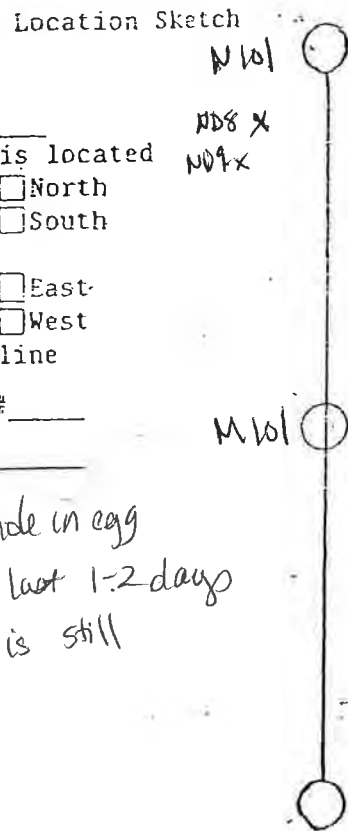 Location Sketch
N101
ND8 X
is located ND9 X
☐North
☐South
☐East
☐West
line
#
M101
hole in egg
last 1-2 days
is still